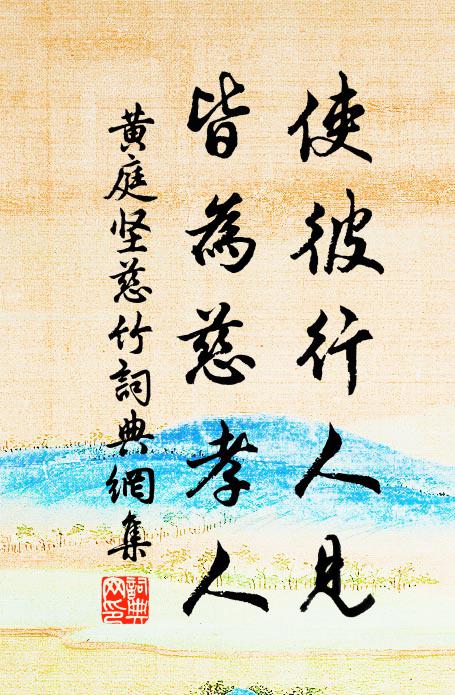 使彼行人見
皆為慈孝人
黄庭坚慈竹詞典網集
詞典网印